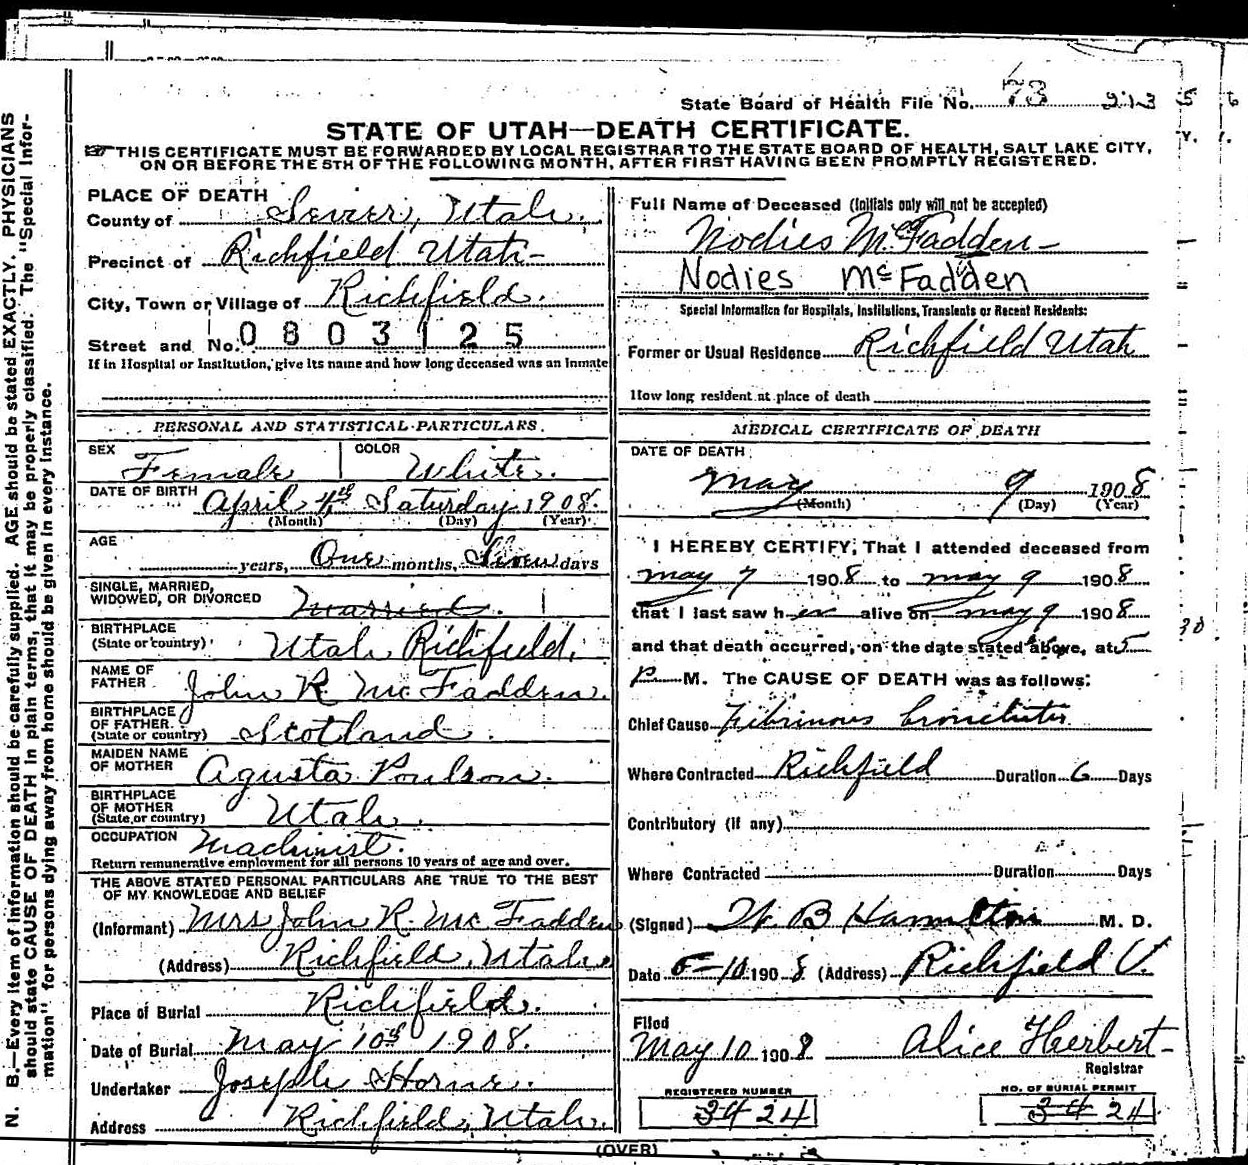 State Board of Health File No. 73 213
STATE OF UTAH—DEATH CERTIFICATE.
THIS CERTIFICATE MUST BE FORWARDED BY LOCAL REGISTRAR TO THE STATE BOARD OF HEALTH, SALT LAKE CITY,
ON OR BEFORE THE 5TH OF THE FOLLOWING MONTH, AFTER FIRST HAVING BEEN PROMPTLY REGISTERED.
N. B.—Every item of information should be carefully supplied. AGE should be stated EXACTLY. PHYSICIANS
should state CAUSE OF DEATH in plain terms, that it may be properly classified. The "Special Infor-
mation" for persons dying away from home should be given in every instance.
PLACE OF DEATH
County of Sevier, Utah.
Precinct of Richfield Utah-
City, Town or Village of Richfield.
Street and No. 0803125
If in Hospital or Institution, give its name and how long deceased was an inmate
PERSONAL AND STATISTICAL PARTICULARS.
SEX Female COLOR White.
DATE OF BIRTH April 4th Saturday 1908.
(Month) (Day) (Year)
AGE
years, One months, days
SINGLE, MARRIED,
WIDOWED, OR DIVORCED Married.
BIRTHPLACE
(State or country) Utah Richfield.
NAME OF
FATHER John R McFadden.
BIRTHPLACE
OF FATHER.
(State or country) Scotland.
MAIDEN NAME
OF MOTHER Agusta Poulson.
BIRTHPLACE
OF MOTHER
(State or country) Utah.
OCCUPATION Machinist.
Return remunerative employment for all persons 10 years of age and over.
THE ABOVE STATED PERSONAL PARTICULARS ARE TRUE TO THE BEST
OF MY KNOWLEDGE AND BELIEF
(Informant) Mrs John R. McFadden
(Address) Richfield, Utah.
Place of Burial Richfield.
Date of Burial May 10th 1908.
Undertaker Joseph Horne.
Address Richfield, Utah.
Full Name of Deceased (Initials only will not be accepted)
Nodies McFadden-
Nodies McFadden
Special Information for Hospitals, Institutions, Transients or Recent Residents:
Former or Usual Residence Richfield Utah
How long resident at place of death
MEDICAL CERTIFICATE OF DEATH
DATE OF DEATH
May 9 1908
(Month) (Day) (Year)
I HEREBY CERTIFY, That I attended deceased from
may 7 1908 to may 9 1908
that I last saw her alive on may 9 1908
and that death occurred, on the date stated above, at 5
P M. The CAUSE OF DEATH was as follows:
Chief Cause Fibrinous bronchitis
Where Contracted Richfield Duration 6 Days
Contributory (if any)
Where Contracted Duration Days
(Signed) W. B Hamilton M. D.
Date 5-10 1908 (Address) Richfield U.
Filed
May 10 1908 Alice Herbert-
Registrar
REGISTERED NUMBER
34 24
NO. OF BURIAL PERMIT
34 24
(OVER)